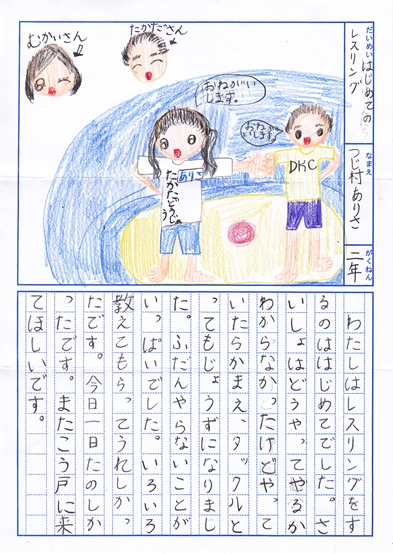 だいめい はじめての
レスリング
なまえ つじ村ありさ
がくねん 二年
むかいさん
たかださん
おねがい
します。
おねが
いします。
DKC
ありさ
わたしはレスリングをす
るのははじめてでした。さ
いしょはどうやってやるか
わからなかったけどやって
いたらかまえ、タックルと
ってもじょうずになりまし
た。ふだんやらないことが
いっぱいでした。いろいろ
教えてもらってうれしかっ
たです。今日一日たのしか
ったです。またこう戸に来
てほしいです。